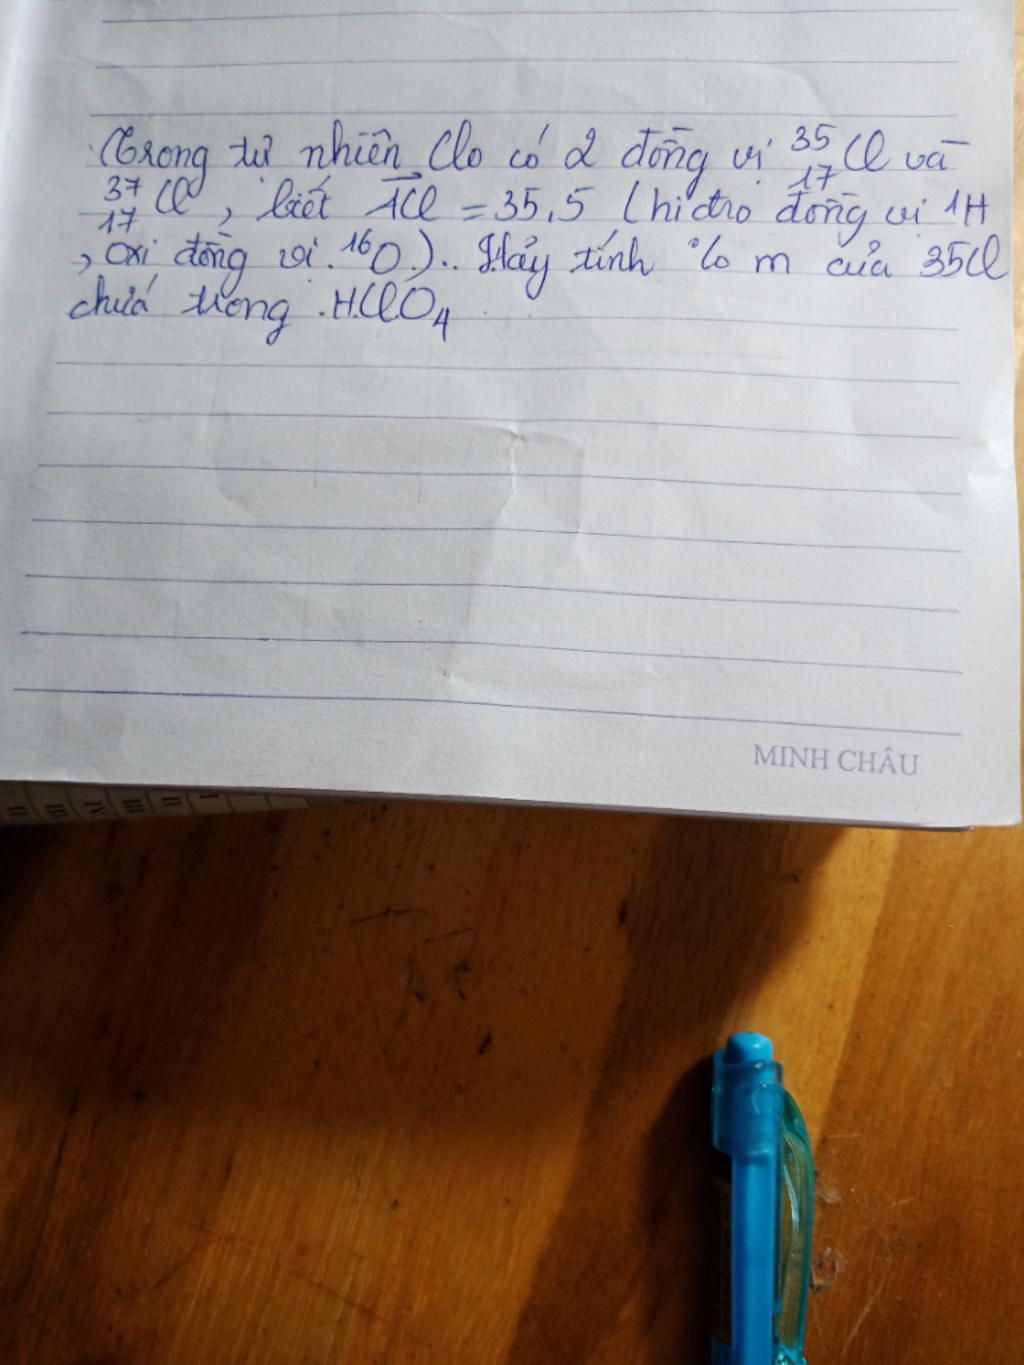 Trong tự nhiên Clo có 2 đồng vị ³⁵₁₇Cl và
³⁷₁₇Cl, biết ACl = 35,5 (hidro đồng vị 1H
, oxi đồng vị ¹⁶O).. Hảy tính % m của 35Cl
chứá trong .HClO₄
MINH CHÂU
I
II
III
IV
III
II